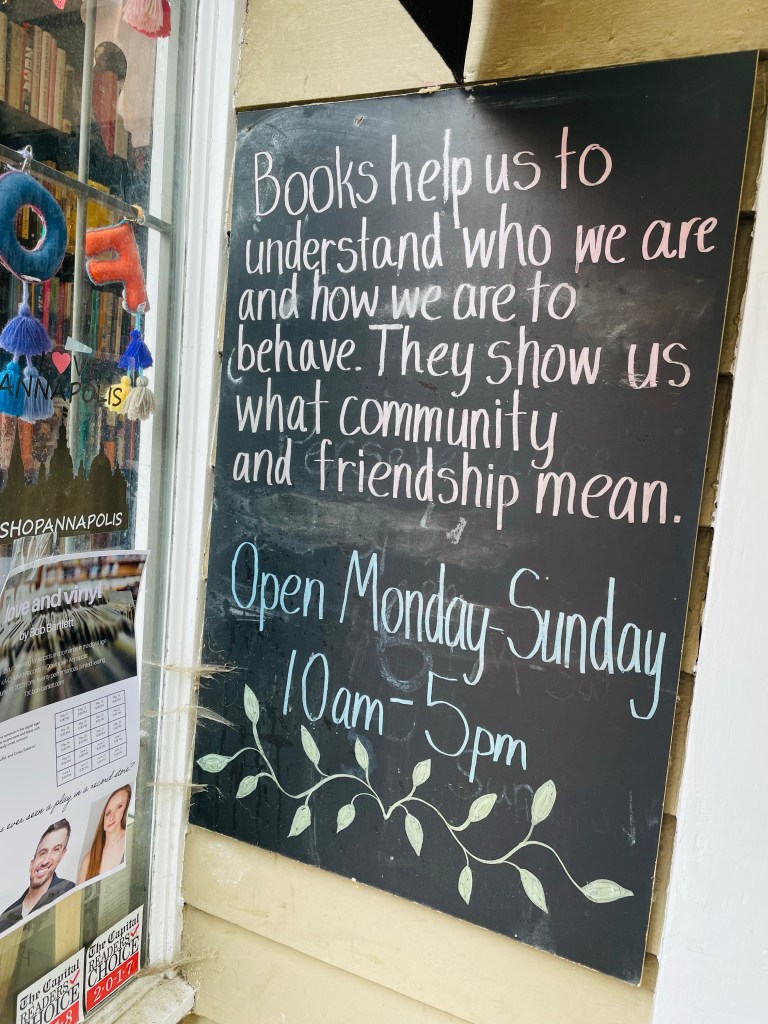 Books help us to
understand who we are
and how we are to
behave. They show us
what community
and friendship mean.
Open Monday-Sunday
10am-5pm
ANNAPOLIS
SHOPANNAPOLIS
love and vinyl
by Bob Bartlett
ever seen a play in a record store?
The Capital
READERS
CHOICE
2·0·1·7
The Capital
READERS
CHOICE